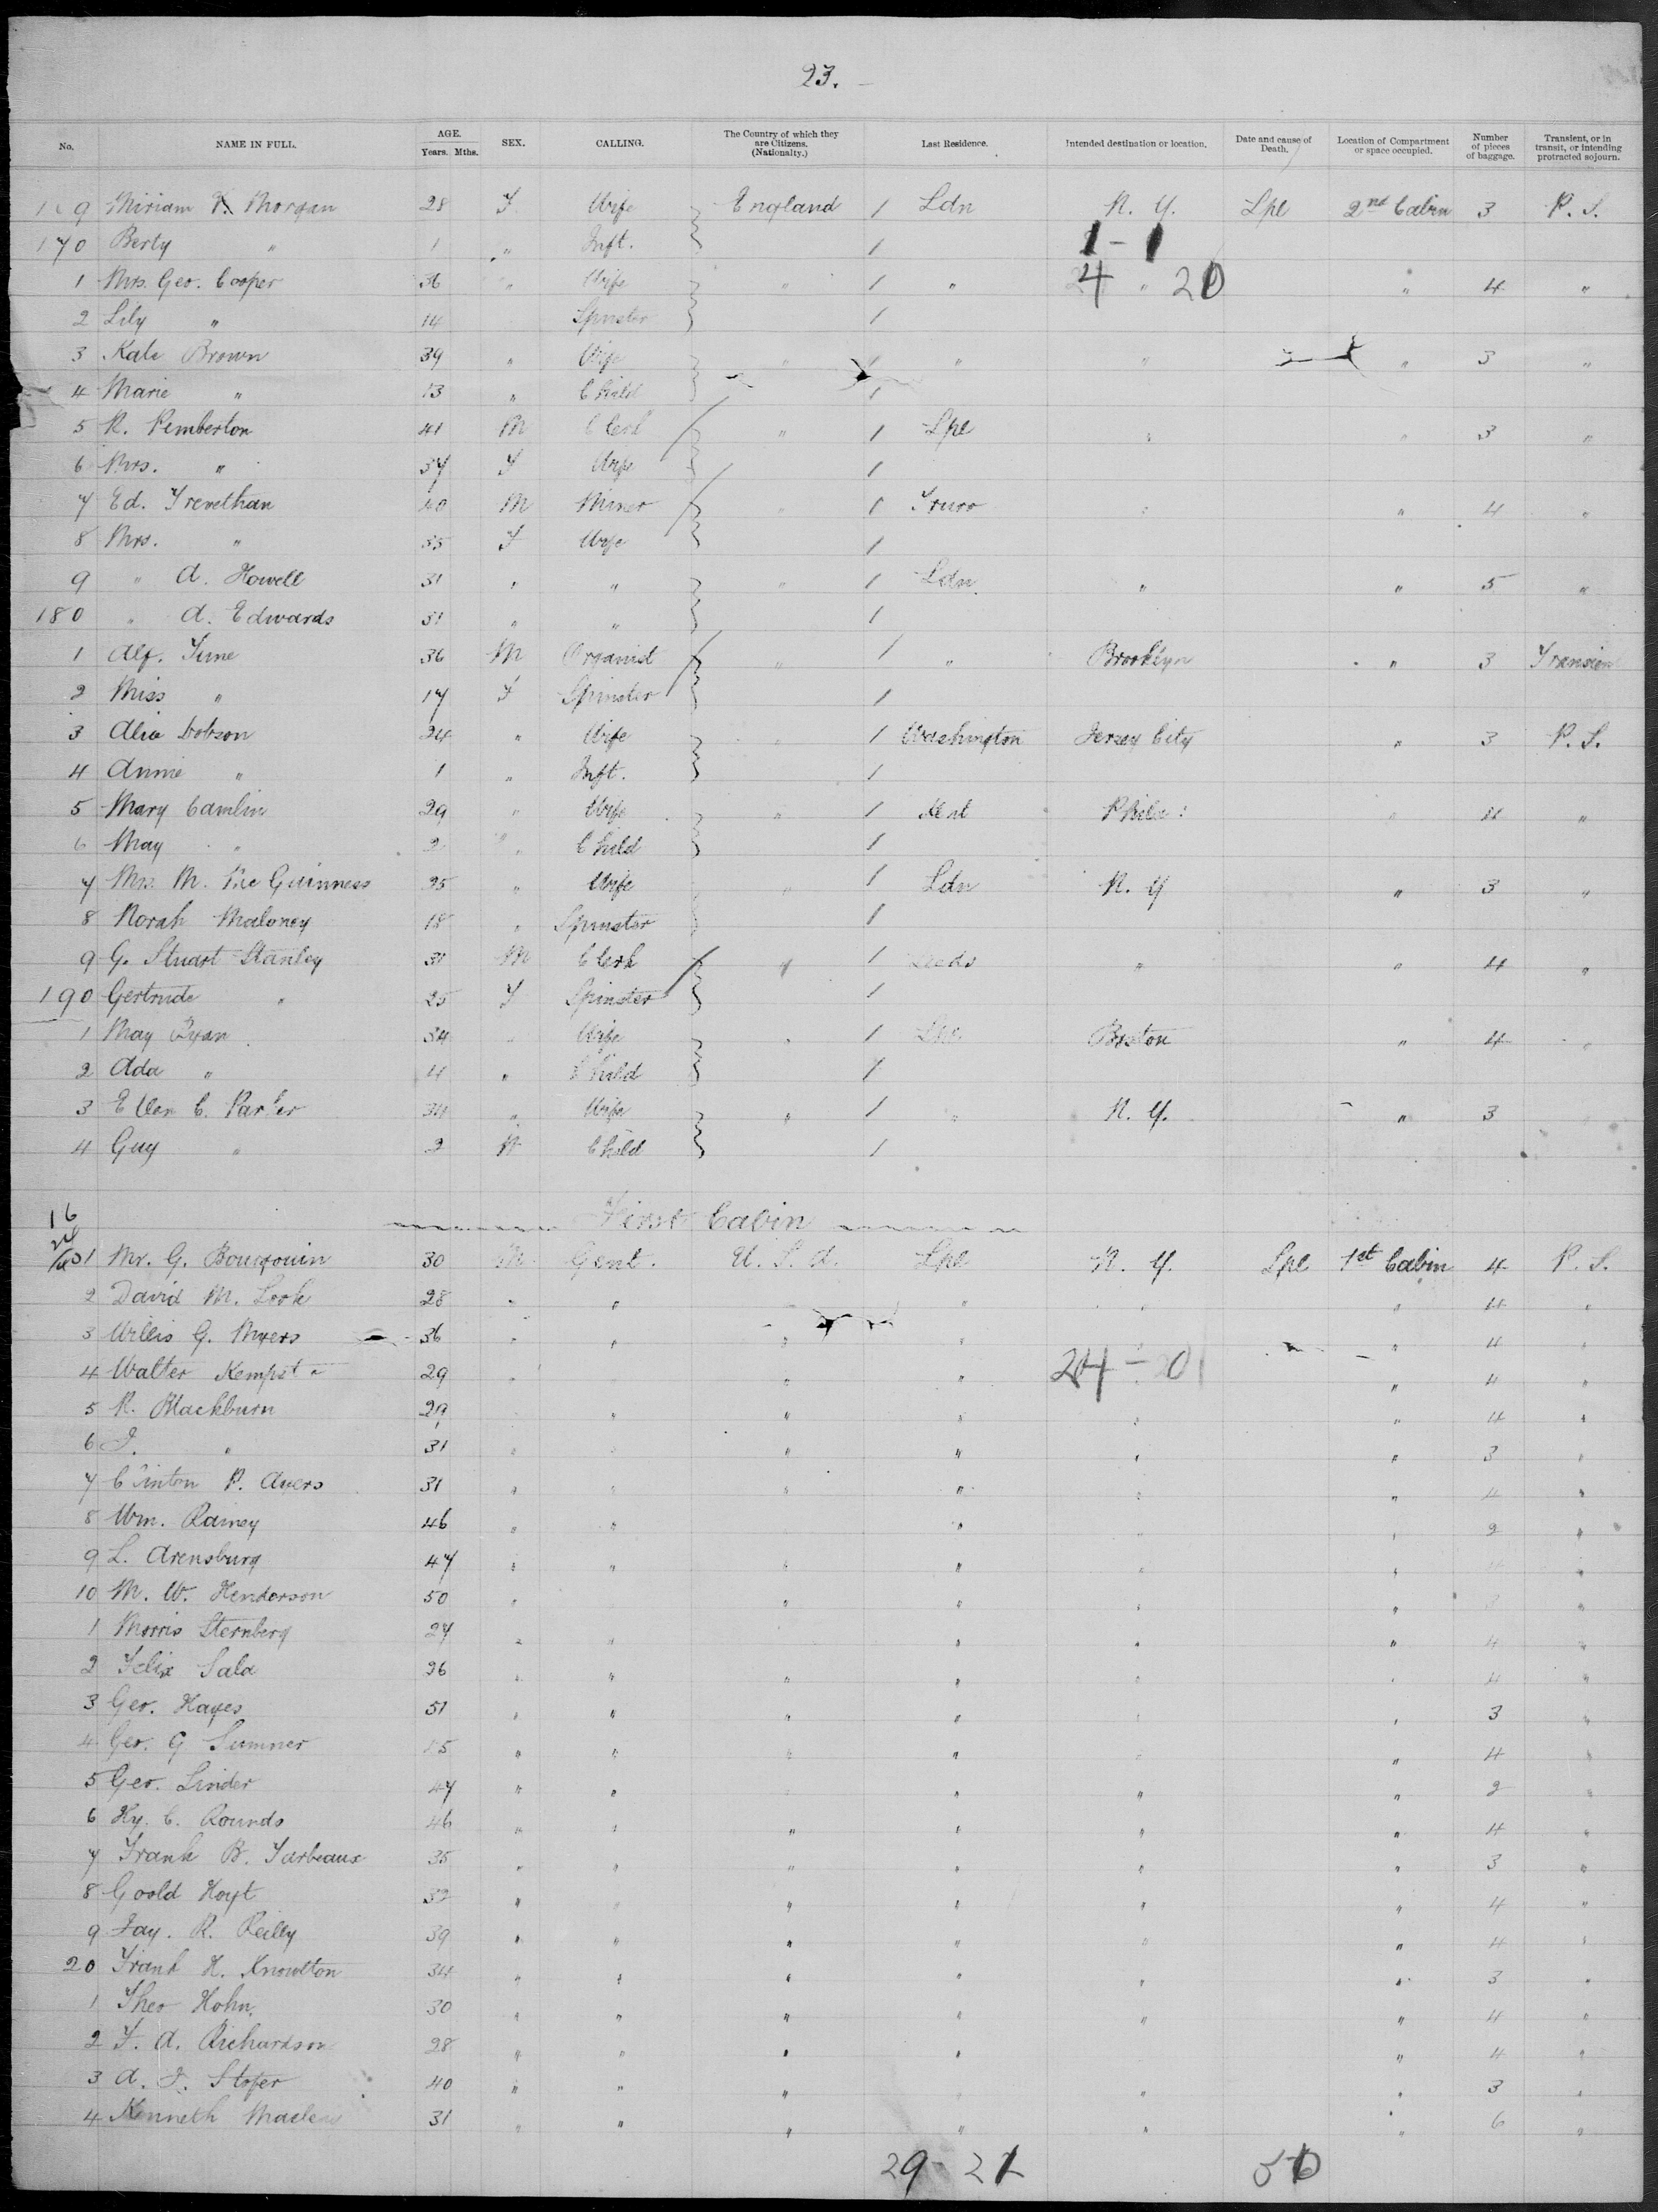 23.
No. NAME IN FULL. AGE. Years. Mths. SEX. CALLING. The Country of which they are Citizens. (Nationalty.) Last Residence. Intended destination or location. Date and cause of Death. Location of Compartment or space occupied. Number of pieces of baggage. Transient, or in transit, or intending protracted sojourn.
9 Miriam Morgan 28 F Wife England 1 Ldn N. Y. Lpl 2nd Cabin 3 P. S.
170 Berty " 1 " Inft. 1 1 - 1
1 Mrs. Geo. Cooper 36 " Wife " 1 " 4 " 20 " 4 "
2 Lily " 14 Spinster 1
3 Kate Brown 39 " Wife " 1 " " " 3 "
4 Marie " 13 " Child 1
5 R. Pemberton 41 M Clerk " 1 Lpl " " 3 "
6 Mrs. " 37 F Wife 1
7 Ed. Trenethan 40 M Miner " 1 Truro " " 4 "
8 Mrs. " 35 F Wife 1
9 " A. Howell 31 " " " 1 Ldn " " 5 "
180 " A. Edwards 31 " " 1
1 Alf. June 36 M Organist " 1 " Brooklyn " 3 Transient
2 Miss " 17 F Spinster 1
3 Alice Dobson 24 " Wife " 1 Washington Jersey City " 3 P. S.
4 Annie " 1 " Inft. 1
5 Mary Camlin 29 " Wife " 1 Kent Phila: " 4 "
6 May " 2 " Child 1
7 Mrs. M. Mc Guinness 25 " Wife " 1 Ldn N. Y " 3 "
8 Norah Maloney 18 " Spinster 1
9 G. Stuart Stanley 31 M Clerk " 1 Leeds " " 4 "
190 Gertrude " 25 F Spinster 1
1 May Ryan 34 " Wife " 1 Boston " 4 "
2 Ada " 4 " Child 1
3 Ellen C. Parker 34 " Wife " 1 " N. Y. " 3
4 Guy " 2 M Child 1
16
First Cabin
1 Mr. G. Bourgouin 30 M Gent. U. S. A. Lpl N. Y. Lpl 1st Cabin 4 P. S.
2 David M. Look 28 " " " " " 4 "
3 Willis G. Myers 36 " " " " " " 4 "
4 Walter 29 " " " 24 - 01 " 4 "
5 R. Blackburn 29 " " " " " " 4 "
6 J. " 31 " " " " " " 3 "
7 Clinton P. Ayers 31 " " " " " " 4 "
8 Wm. Rainey 46 " " " " " 2 "
9 L. Arensburg 47 " " " " " " "
10 M. W. Henderson 50 " " " " " "
1 Morris Sternberg 27 " " " " " 4 "
2 Felix Sala 26 " " " " " 4 "
3 Geo. Hayes 51 " " " " " " 3 "
4 Geo. G Sumner " " " " " " 4 "
5 Geo. Linder 47 " " " " " 2 "
6 Hy. C. Rounds 46 " " " " " " 4 "
7 Frank B. Tarbeaux 35 " " " " " " 3 "
8 Goold Hoyt 32 " " " " " " 4 "
9 Jay. R. Reilly 39 " " " " " " 4 "
20 Frank H. Knowlton 34 " " " " " " 3 "
1 Theo Hohn. 30 " " " " " " 4 "
2 F. A. Richardson 28 " " " " " 4 "
3 A. J. Stofer 40 " " " " " 3 "
4 Kenneth 31 " " " " " " 6 "
29 - 21